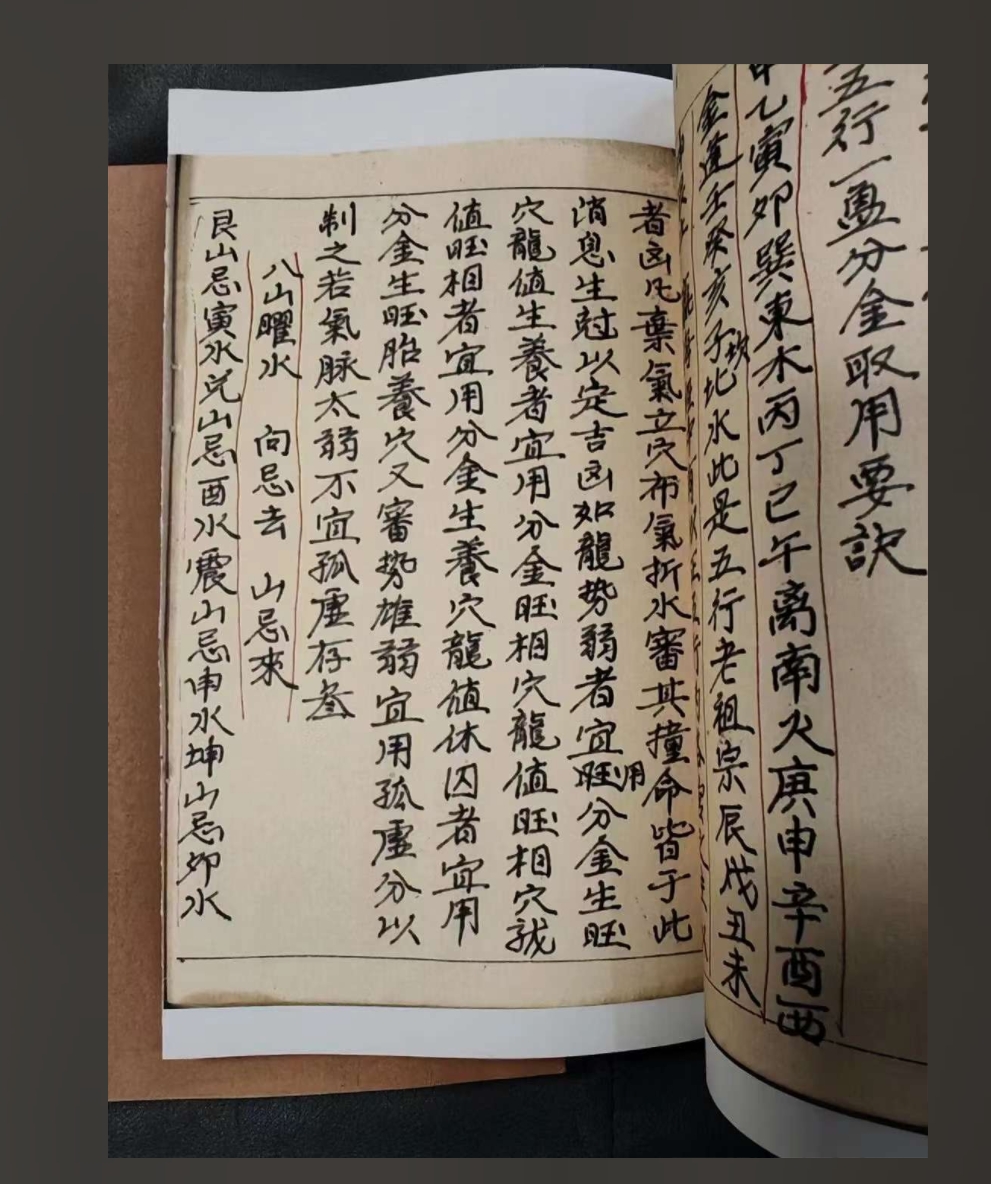 五行一盈分金取用要訣
甲乙寅卯巽東木丙丁已午离南火庚申辛酉西
金逢壬癸亥子坎北水此是五行老祖宗辰戌丑未
者凶凡棄氣立穴布氣折水審其撞命皆于此
消息生尅以定吉凶如龍势弱者宜用旺分金生旺
穴龍值生養者宜用分金旺相穴龍值旺相穴就
值旺相者宜用分金生養穴龍值休囚者宜用
分金生旺胎養穴又審势雄弱宜用孤虛分以
制之若氣脉太弱不宜孤虛存叁
八山曜水 向忌去 山忌來
艮山忌寅水兌山忌酉水震山忌申水坤山忌卯水